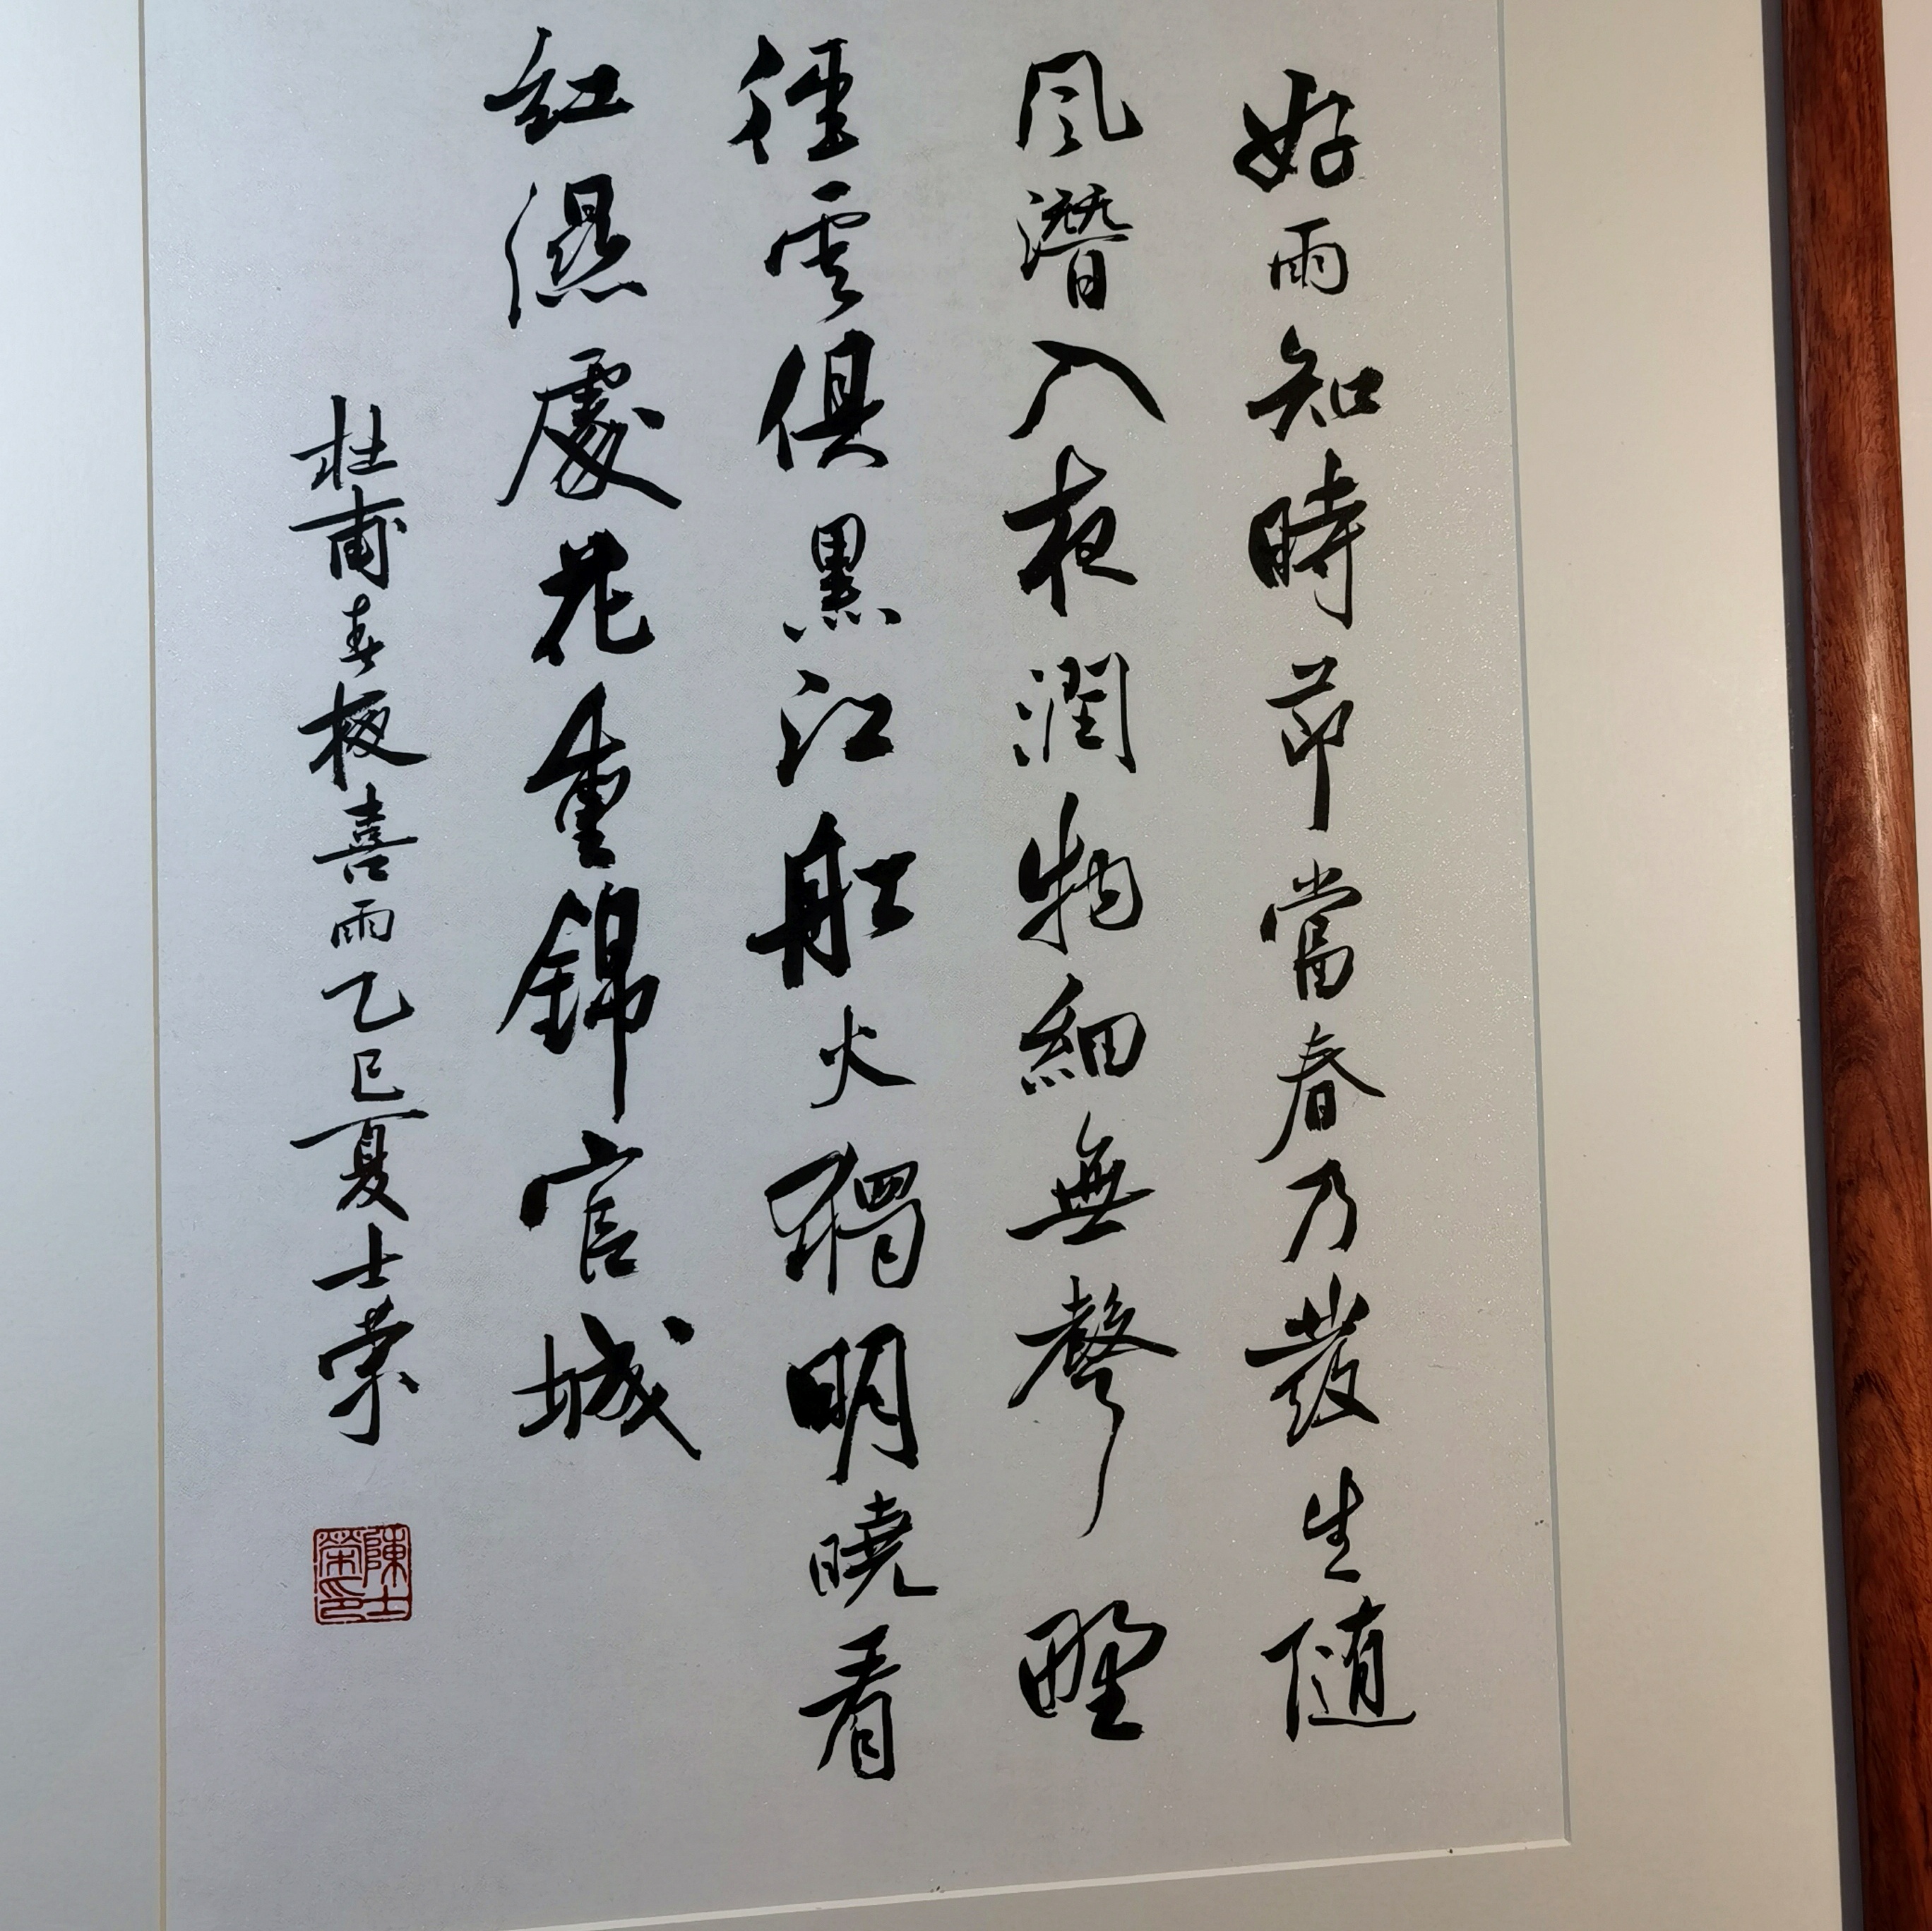 好雨知時節當春乃發生隨
風潛入夜潤物細無聲野
徑雲俱黑江船火獨明曉看
紅濕處花重錦官城
杜甫春夜喜雨乙巳夏士榮
陳士榮印